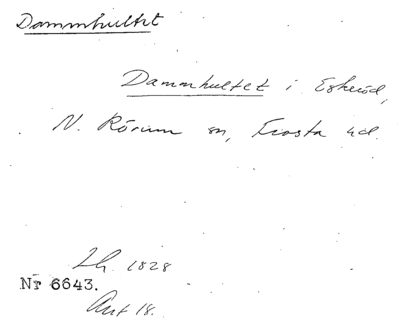 Dammhultet
Dammhultet i Eskeröd,
N. Rörum sn, Frosta hd.
Lh. 1828
Nr 6643.
Ant 18.